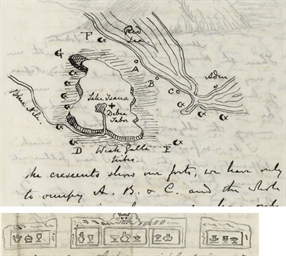 F
Red
Sea
G
A
B
C
Aden
Lake Tsana
Debra
Tabor
Blue Nile
D
E
Wah Galla
tribes
The crescents shew our forts, we have only
to occupy A. B. & C. and the whole